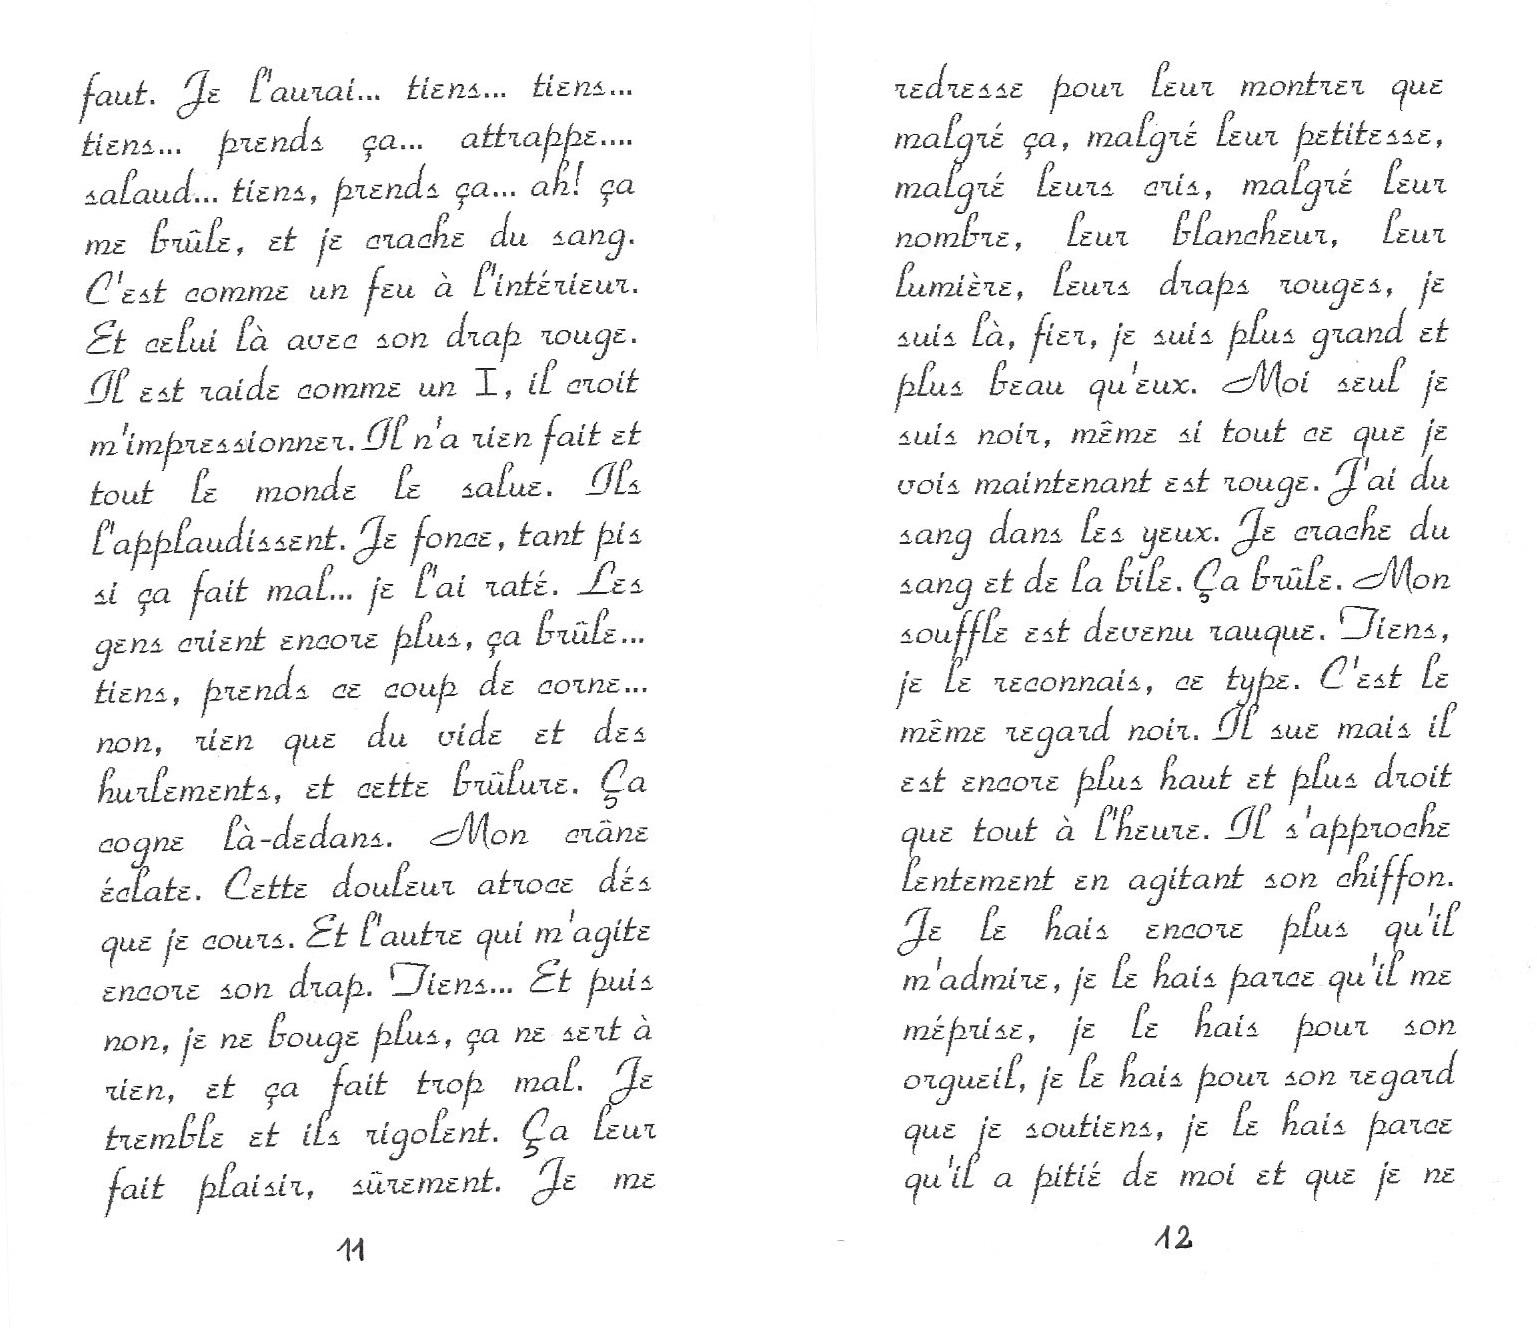 faut. Je l'aurai... tiens... tiens...
tiens... prends ça... attrappe....
salaud... tiens, prends ça... ah! ça
me brûle, et je crache du sang.
C'est comme un feu à l'intérieur.
Et celui là avec son drap rouge.
Il est raide comme un I, il croit
m'impressionner. Il n'a rien fait et
tout le monde le salue. Ils
l'applaudissent. Je fonce, tant pis
si ça fait mal... je l'ai raté. Les
gens crient encore plus, ça brûle...
tiens, prends ce coup de corne...
non, rien que du vide et des
hurlements, et cette brûlure. Ça
cogne là-dedans. Mon crâne
éclate. Cette douleur atroce dés
que je cours. Et l'autre qui m'agite
encore son drap. Tiens... Et puis
non, je ne bouge plus, ça ne sert à
rien, et ça fait trop mal. Je
tremble et ils rigolent. Ça leur
fait plaisir, sûrement. Je me
11
redresse pour leur montrer que
malgré ça, malgré leur petitesse,
malgré leurs cris, malgré leur
nombre, leur blancheur, leur
lumière, leurs draps rouges, je
suis là, fier, je suis plus grand et
plus beau qu'eux. Moi seul je
suis noir, même si tout ce que je
vois maintenant est rouge. J'ai du
sang dans les yeux. Je crache du
sang et de la bile. Ça brûle. Mon
souffle est devenu rauque. Tiens,
je le reconnais, ce type. C'est le
même regard noir. Il sue mais il
est encore plus haut et plus droit
que tout à l'heure. Il s'approche
lentement en agitant son chiffon.
Je le hais encore plus qu'il
m'admire, je le hais parce qu'il me
méprise, je le hais pour son
orgueil, je le hais pour son regard
que je soutiens, je le hais parce
qu'il a pitié de moi et que je ne
12